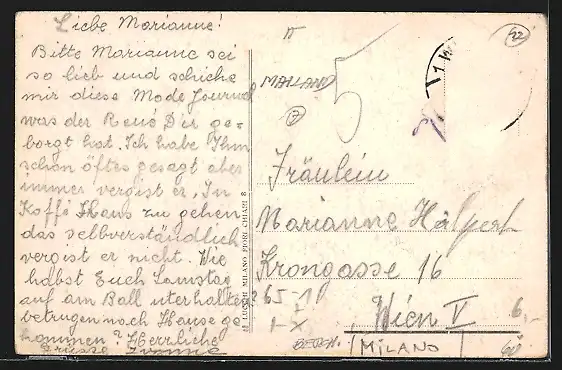 Liebe Marianne!
Bitte Marianne sei
so lieb und schicke
mir diese Mode Journal
was der René Dir ge-
borgt hat. Ich habe Ihm
schon öftes gesagt aber
immer vergist er, In
Koffé Haus zu gehen
das selbverständlich
vergist er nicht. Wie
habst Euch Samstag
auf am Ball uterhalten?
betrugen noch Hause ge
kommen? Herzliche
Grüsse Ivonne
MILANO FIORI CHIARI 8
II
MAILAND
7
5
22
1 W
Fräulein
Marianne Halpert
Krongasse 16
Wien V
65 - 10
1 - X
6,-
MILANO